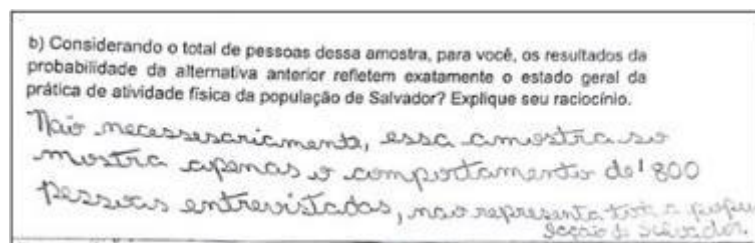 b) Considerando o total de pessoas dessa amostra, para você, os resultados da
probabilidade da alternativa anterior refletem exatamente o estado geral da
prática de atividade física da população de Salvador? Explique seu raciocínio.
Não necessesariamente, essa amostra so
mostra apenas o comportamento de 1800
pessoas entrevistadas, não representa toda a popu
lação de Salvador